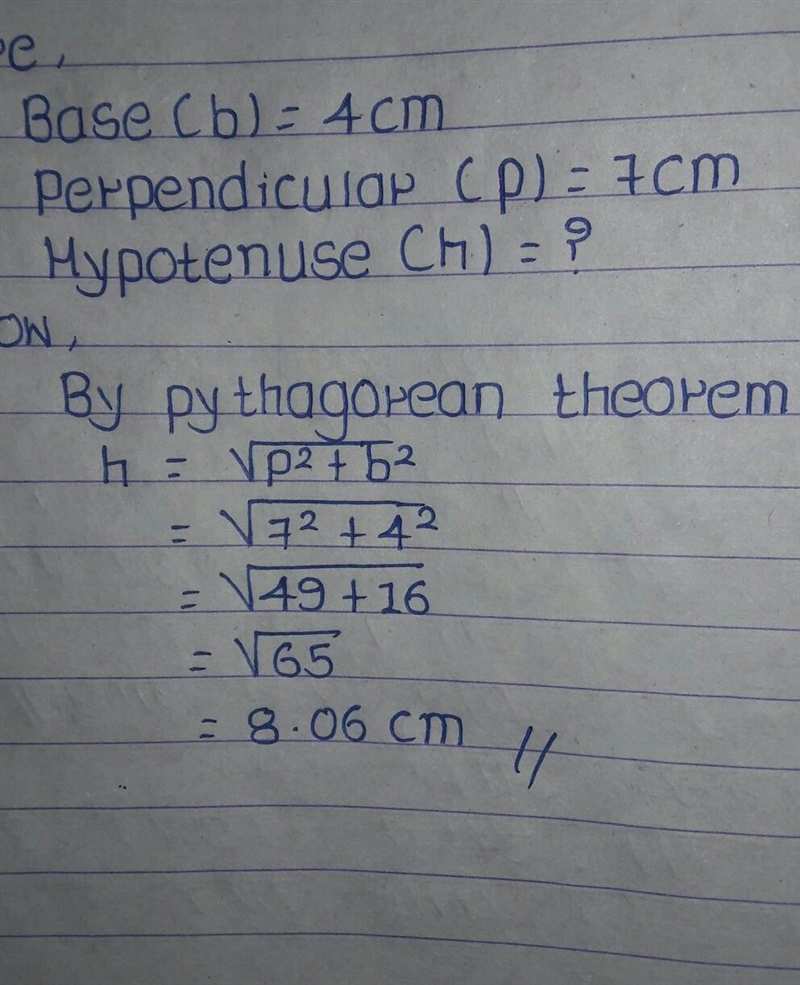 re,
Base (b) = 4cm
perpendicular (p) = 7cm
Hypotenuse (h) = ?
ow,
By pythagorean theorem
h = √p² + b²
= √7² + 4²
= √49 + 16
= √65
= 8.06 cm //